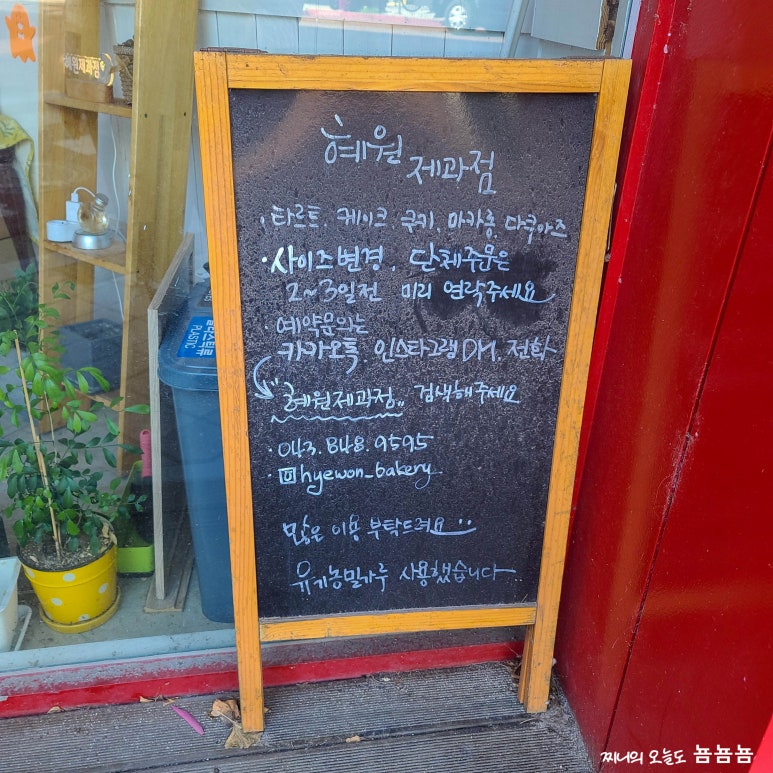 혜원제과점
혜원 제과점
· 타르트, 케이크, 쿠키, 마카롱, 다쿠아즈
· 사이즈변경, 단체주문은
2~3일전 미리 연락주세요
· 예약문의는
카카오톡, 인스타그램 DM, 전화
"혜원제과점" 검색해주세요
· 043. 848. 9595
· hyewon_bakery
많은 이용 부탁드려요
유기농밀가루 사용했습니다.
플라스틱류
PLASTIC
찌니의 오늘도 뇸뇸뇸